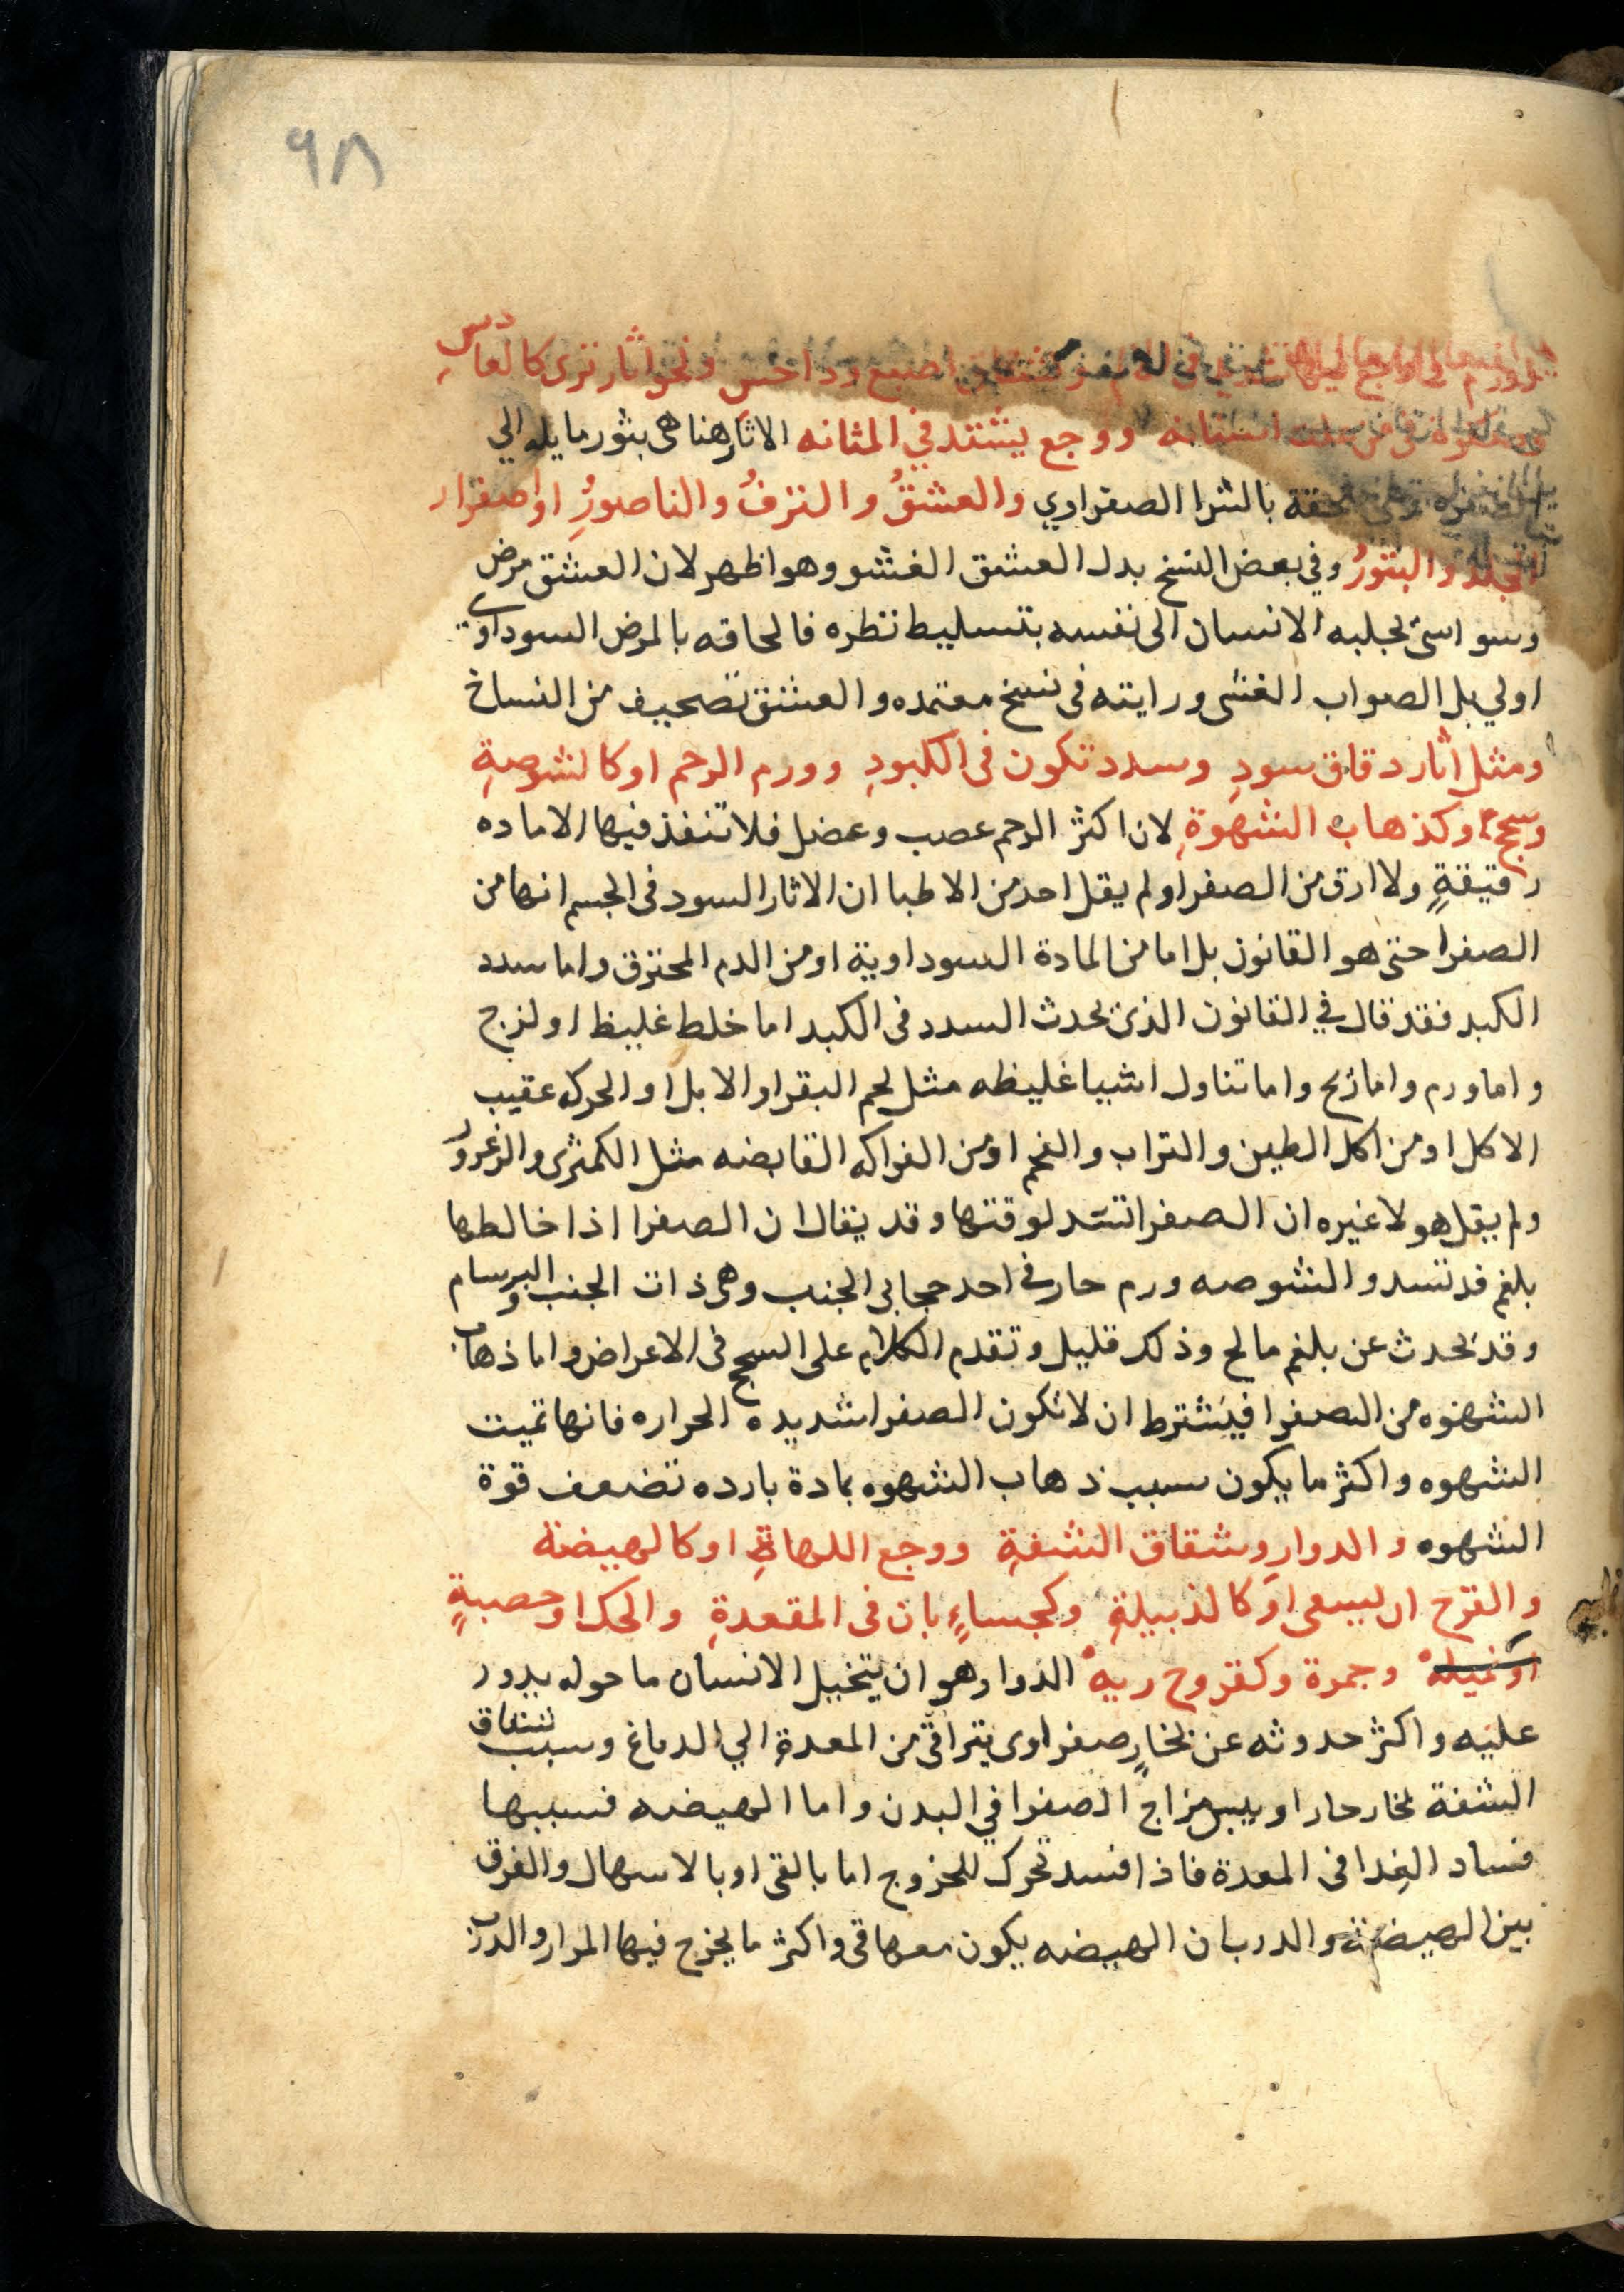 ٩٨
اصبع وداحس ونحو اثار ترى كالعادس
ووجع يشتد في المثانه الاثار هنا هى بثور مايله الي
بالشرا الصفراوي والعشقُ والنزفُ والناصورُ او اصفرار
الجلد والبثورُ وفي بعض النسخ بدل العشق الغشو وهو اظهر لان العشق مرض
وسواسى يجلبه الانسان الى نفسه بتسليط نظره فالحاقه بالمرض السوداوي
اولي بل الصواب الغشى ورايته فى نسخ معتمده والعشق تصحيف من النساخ
ومثل اثار دقاق سودِ وسدد تكون فى الكبودِ وورم الرحم او كالشوصةِ
وسحج او كذهاب الشهوةِ لان اكثر الرحم عصب وعضل فلا تنفذ فيها الا ماده
رقيقةٍ ولا ارق من الصفرا ولم يقل احد من الاطبا ان الاثار السود فى الجسم انها من
الصفرا حتى هو القانون بل اما من المادة السوداوية او من الدم المحترق واما سدد
الكبد فقد قال في القانون الذى يحدث السدد فى الكبد اما خلط غليظ او لزج
واما ورم واما ريح واما تناول اشيا غليظه مثل لحم البقر او الابل او الحركه عقيب
الاكل او من اكل الطين والتراب والفحم او من الفواكه القابضه مثل الكمثرى والزعرور
ولم يقل هو ولا غيره ان الصفرا تسد لوقتها وقد يقال ان الصفرا اذا خالطها
بلغم قد تسد والشوصه ورم حار في احد حجابى الجنب وهى ذات الجنب والبرسام
وقد يحدث عن بلغم مالح وذلك قليل وتقدم الكلام على السحج فى الاعراض واما ذهاب
الشهوه من الصفرا فيشترط ان لا تكون الصفرا شديده الحراره فانها تميت
الشهوه واكثر ما يكون سبب ذهاب الشهوه بمادة بارده تضعف قوة
الشهوه والدوارِ وشقاق الشفةِ ووجع اللهاةِ او كالهيضة
والقرح ان يسعى او كالذبيلةِ وكجساءٍ بان فى المقعدةِ والحك او حصبةٍ
او نميلهْ وجمرة وكقروح ريهْ الدوار وهو ان يتخيل الانسان ما حوله يدور
عليه واكثر حدوثه عن بخارٍ صفراوى يتراقى من المعدة الي الدماغ وسبب شقاق
الشفة بخار حار او يبس مزاج الصفرا في البدن واما الهيضه فسببها
فساد الغذا فى المعدة فاذا فسد تحرك للخروج اما بالقى او بالاسهال والفرق
بين الهيضة والدرب ان الهيضه يكون معها قى واكثر ما يخرج فيها المرار والدرب